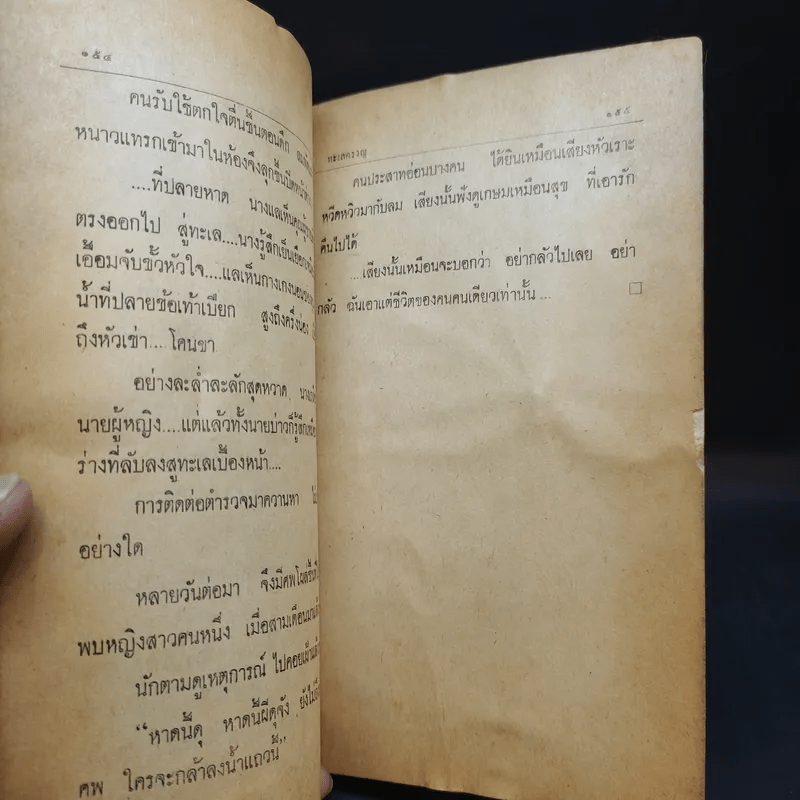 ๑๕๔
คนรับใช้ตกใจตื่นขึ้นตอนดึก
หนาวแทรกเข้ามาในห้องจึงลุกขึ้นปิดหน้าต่าง
....ที่ปลายหาด นางแลเห็นคุณผู้
ตรงออกไป สู่ทะเล....นางรู้สึกเย็นเยือก
เอื้อมจับขั้วหัวใจ....แลเห็นกางเกงนอน
น้ำที่ปลายข้อเท้าเปียก สูงถึงครึ่งน่อง
ถึงหัวเข่า.... โคนขา
อย่างละล่ำละลักสุดหวาด
นายผู้หญิง....แต่แล้วทั้งนายบ่าวก็รู้สึก
ร่างที่ลับลงสู่ทะเลเบื้องหน้า....
การติดต่อตำรวจมาควานหา
อย่างใด
หลายวันต่อมา จึงมีศพโผล่ขึ้น
พบหญิงสาวคนหนึ่ง เมื่อสามเดือน
นักตามดูเหตุการณ์ ไปคอยเฝ้า
“หาดนี้ดุ หาดนี้ผีดุจัง ยังไม่
ศพ ใครจะกล้าลงน้ำแถวนี้”
๑๕๕
ทะเลครวญ
คนประสาทอ่อนบางคน ได้ยินเหมือนเสียงหัวเราะ
หวีดหวิวมากับลม เสียงนั้นฟังดูเกษมเหมือนสุข ที่เอารัก
คืนไปได้
....เสียงนั้นเหมือนจะบอกว่า อย่ากลัวไปเลย อย่า
กลัว ฉันเอาแต่ชีวิตของคนคนเดียวเท่านั้น ...